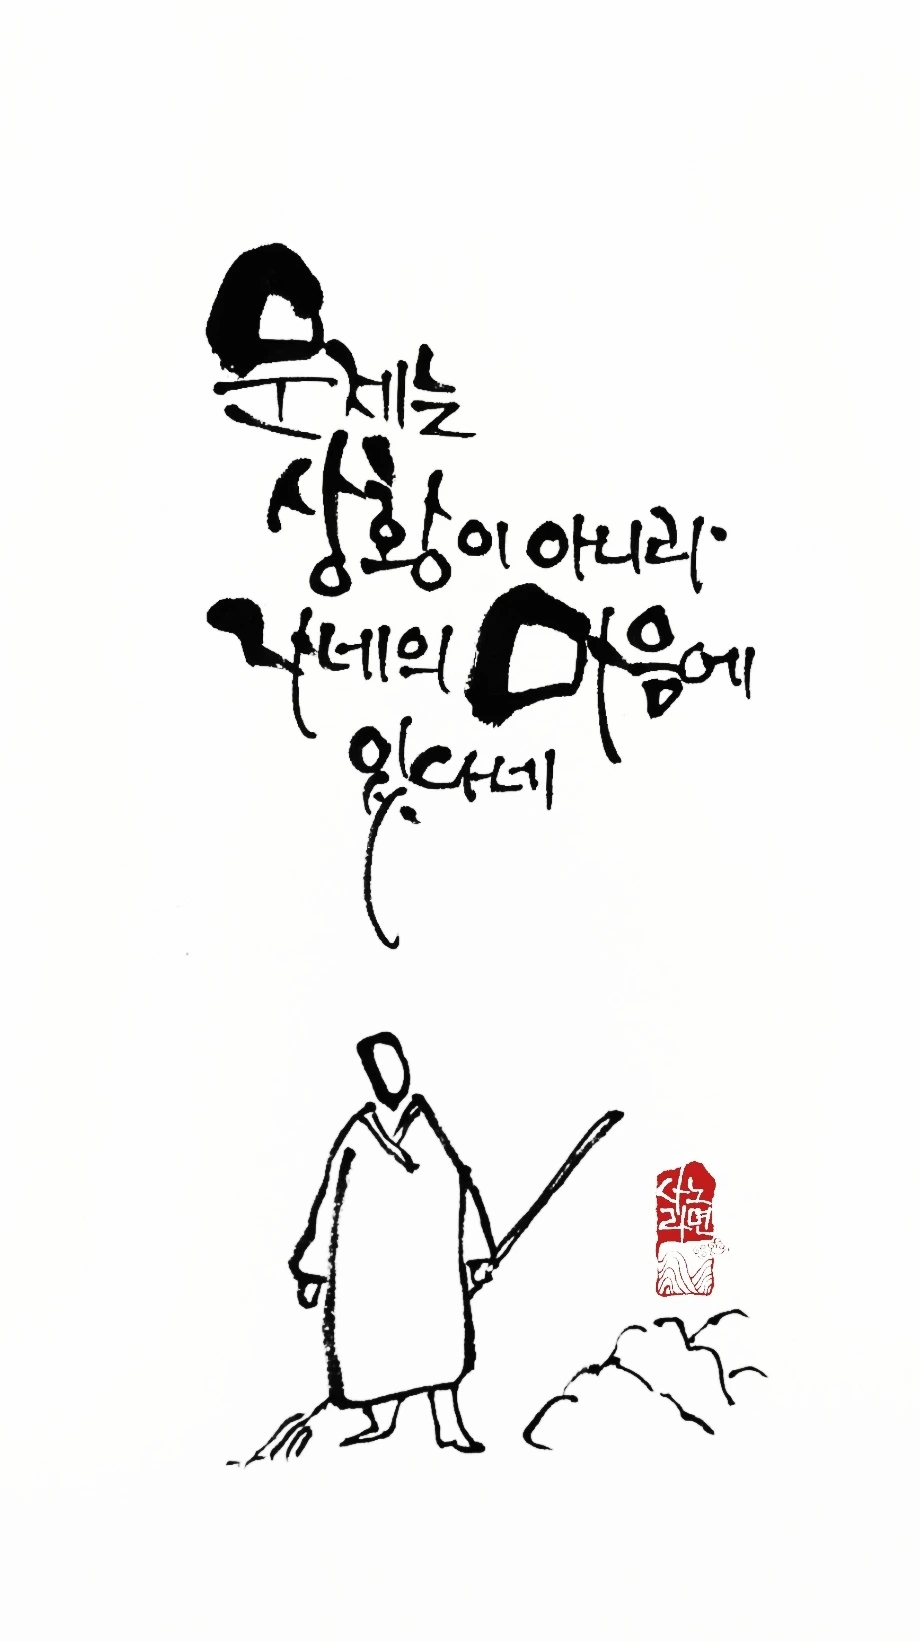 문제는
상황이 아니라
자네의 마음에
있다네
사노
라면